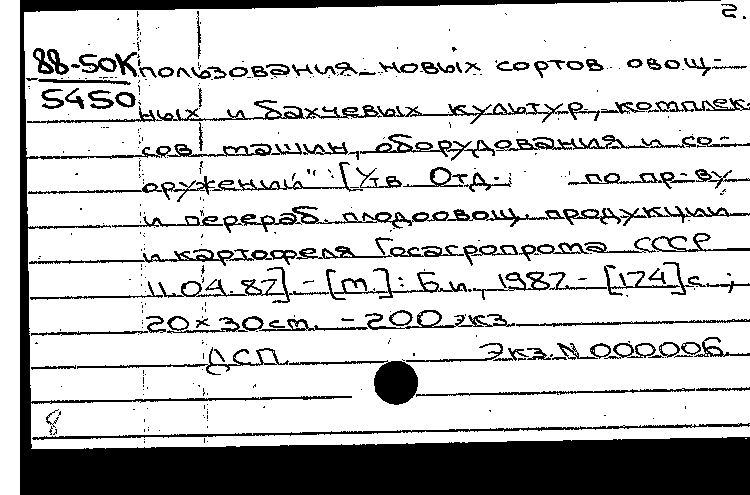 2.
88-50К
5450
пользования новых сортов овощ-
ных и бахчевых культур, комплек-
сов машин, оборудования и со-
оружений" [Утв. Отд. по пр-ву
и перераб. плодоовощ. продукции
и картофеля Госагропрома СССР
11.04.87]. - [М.]: Б.и., 1987. - [174] с. ;
20×30 см. - 200 экз.
ДСП. Экз. N 000006.
8